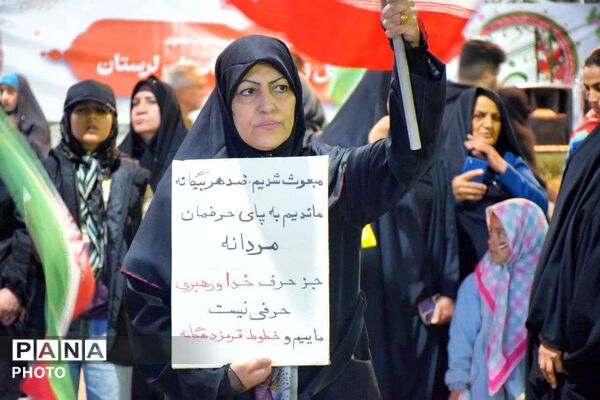 لرستان
مبعوث شدیم ضد هر بیگانه
ماندیم به پای حرفمان
مردانه
جز حرف خدا و رهبری
حرفی نیست
ماییم و خطوط قرمز دهگانه
PANA
PHOTO